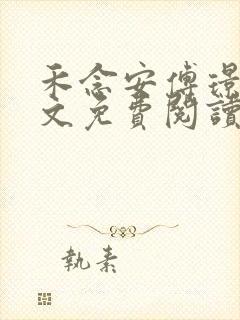 禾念安傅璟
文免費閱讀
執素